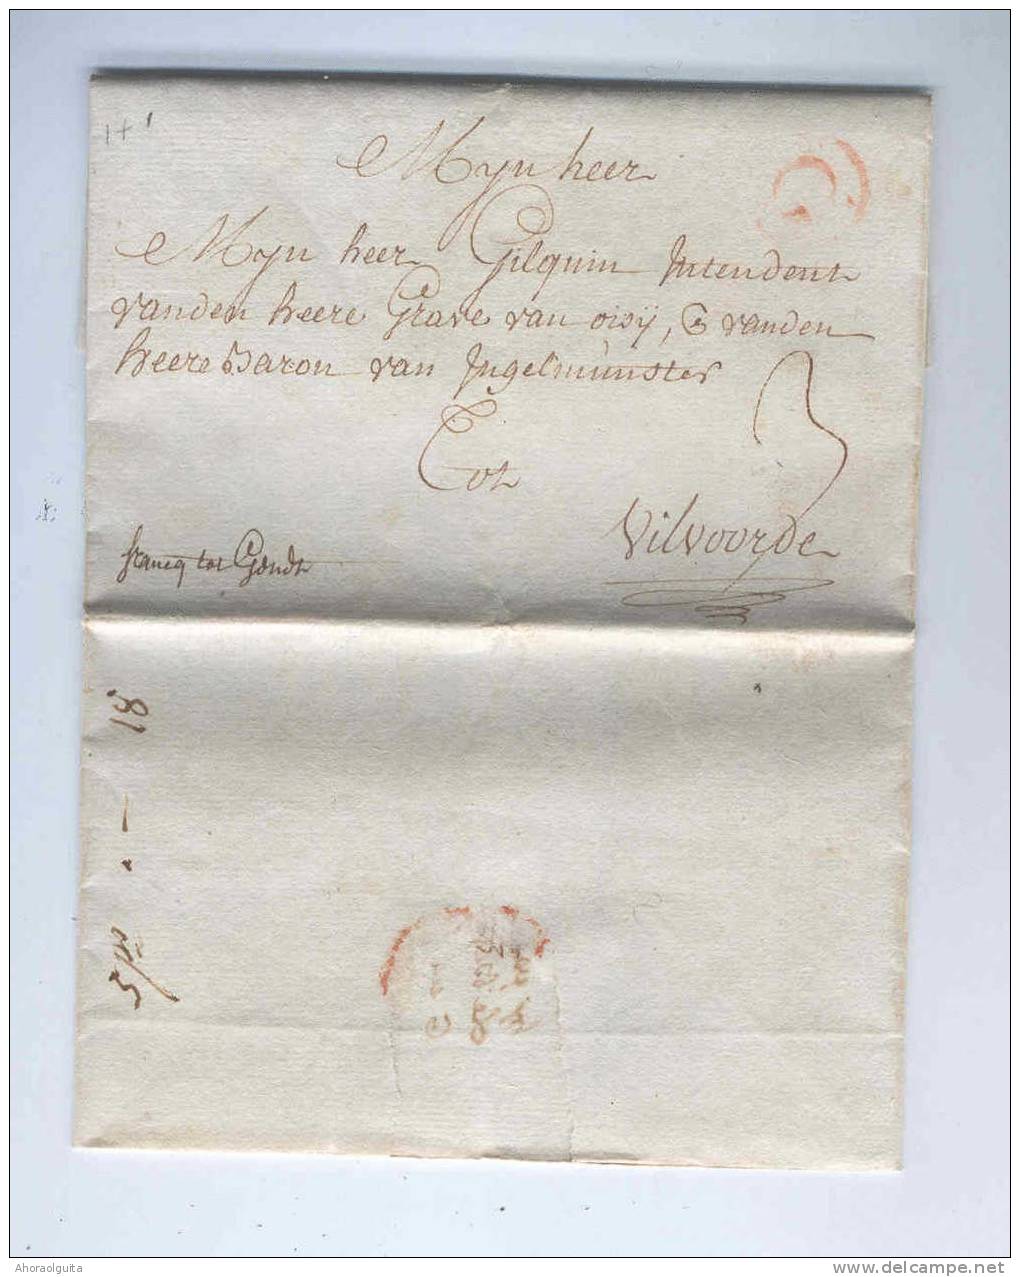 Mÿn heer
Mÿn heer Gilquin Intendent
vanden heere Grave van oisÿ, & vanden
heere Baron van Ingelmunster
Tot
3
Vilvoorde
francq tot Gendt
18
Ahoraolguita
www.delcampe.net